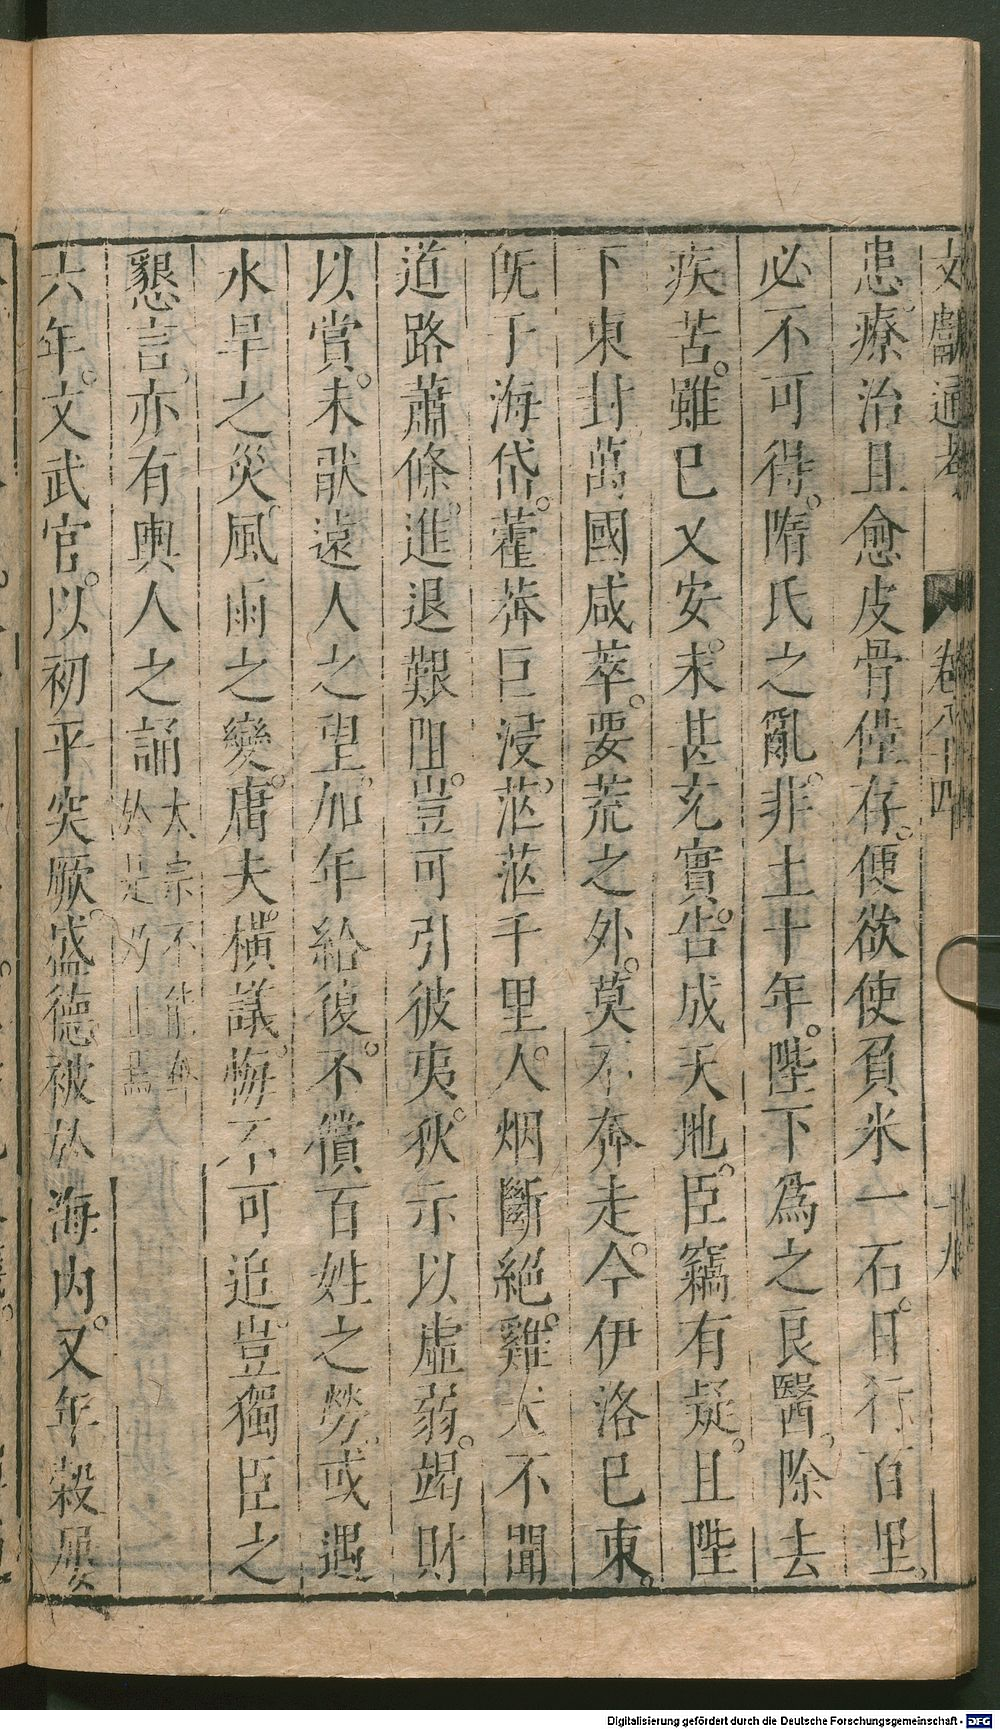 文獻通考 卷八十四 十九
患療治且愈皮骨僅存。便欲使負米一石。日行百里、
必不可得。隋氏之亂。非止十年。陛下爲之良醫、除去
疾苦。雖已乂安。未甚充實。告成天地。臣竊有疑。且陛
下東封萬國咸萃。要荒之外。莫不奔走。今伊洛已東。
旣于海岱。雚莽巨浸、茫茫千里。人烟斷絕。雞犬不聞
道路蕭條。進退艱阻。豈可引彼夷狄。示以虛弱。竭財
以賞。未厭遠人之望。加年給復。不償百姓之勞、或遇
水旱之災。風雨之變。庸夫橫議。悔不可追豈獨臣之
懇言、亦有輿人之誦太宗不能奪
於是乃止焉
六年。文武官。以初平突厥。盛德被於海內。又年穀屢
Digitalisierung gefördert durch die Deutsche Forschungsgemeinschaft - DFG